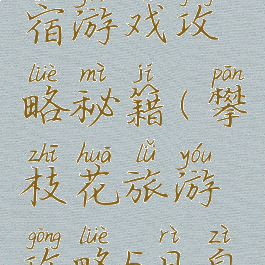 宿游戏攻
lüè mì jí pān
略秘籍(攀
zhī huā lǚ yóu
枝花旅游
gōng lüè rì zì
攻略5日自